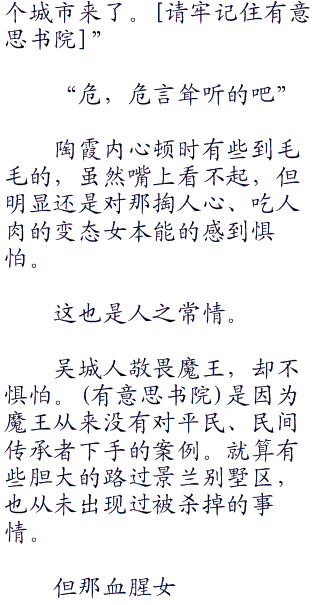 个城市来了。[请牢记住有意
思书院]”
“危，危言耸听的吧”
陶霞内心顿时有些到毛
毛的，虽然嘴上看不起，但
明显还是对那掏人心、吃人
肉的变态女本能的感到惧
怕。
这也是人之常情。
吴城人敬畏魔王，却不
惧怕。(有意思书院)是因为
魔王从来没有对平民、民间
传承者下手的案例。就算有
些胆大的路过景兰别墅区，
也从未出现过被杀掉的事
情。
但那血腥女